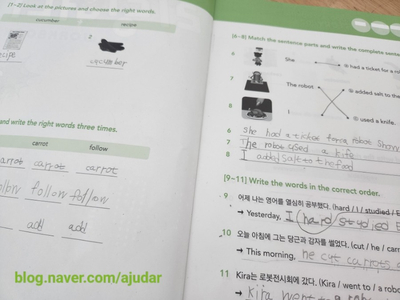 [1-2] Look at the pictures and choose the right words.
cucumber recipe
2
recipe
cucumber
and write the right words three times.
carrot follow
carrot carrot carrot
follow follow follow
add add
[6-8] Match the sentence parts and write the complete sente
6 She ⓐ had a ticket for a ro
7 The robot ⓑ added salt to the
8 I ⓒ used a knife.
6 She had a ticket for a robot Show
7 The robot used a knife
8 I added salt to the food
[9-11] Write the words in the correct order.
9 어제 나는 영어를 열심히 공부했다. (hard / I / studied / E
→ Yesterday, I (hard) studied E
10 오늘 아침에 그는 당근과 감자를 썰었다. (cut / he / carr
→ This morning, he cut carrots a
11 Kira는 로봇전시회에 갔다. (Kira / went to / a robo
→ Kira went to
blog.naver.com/ajudar